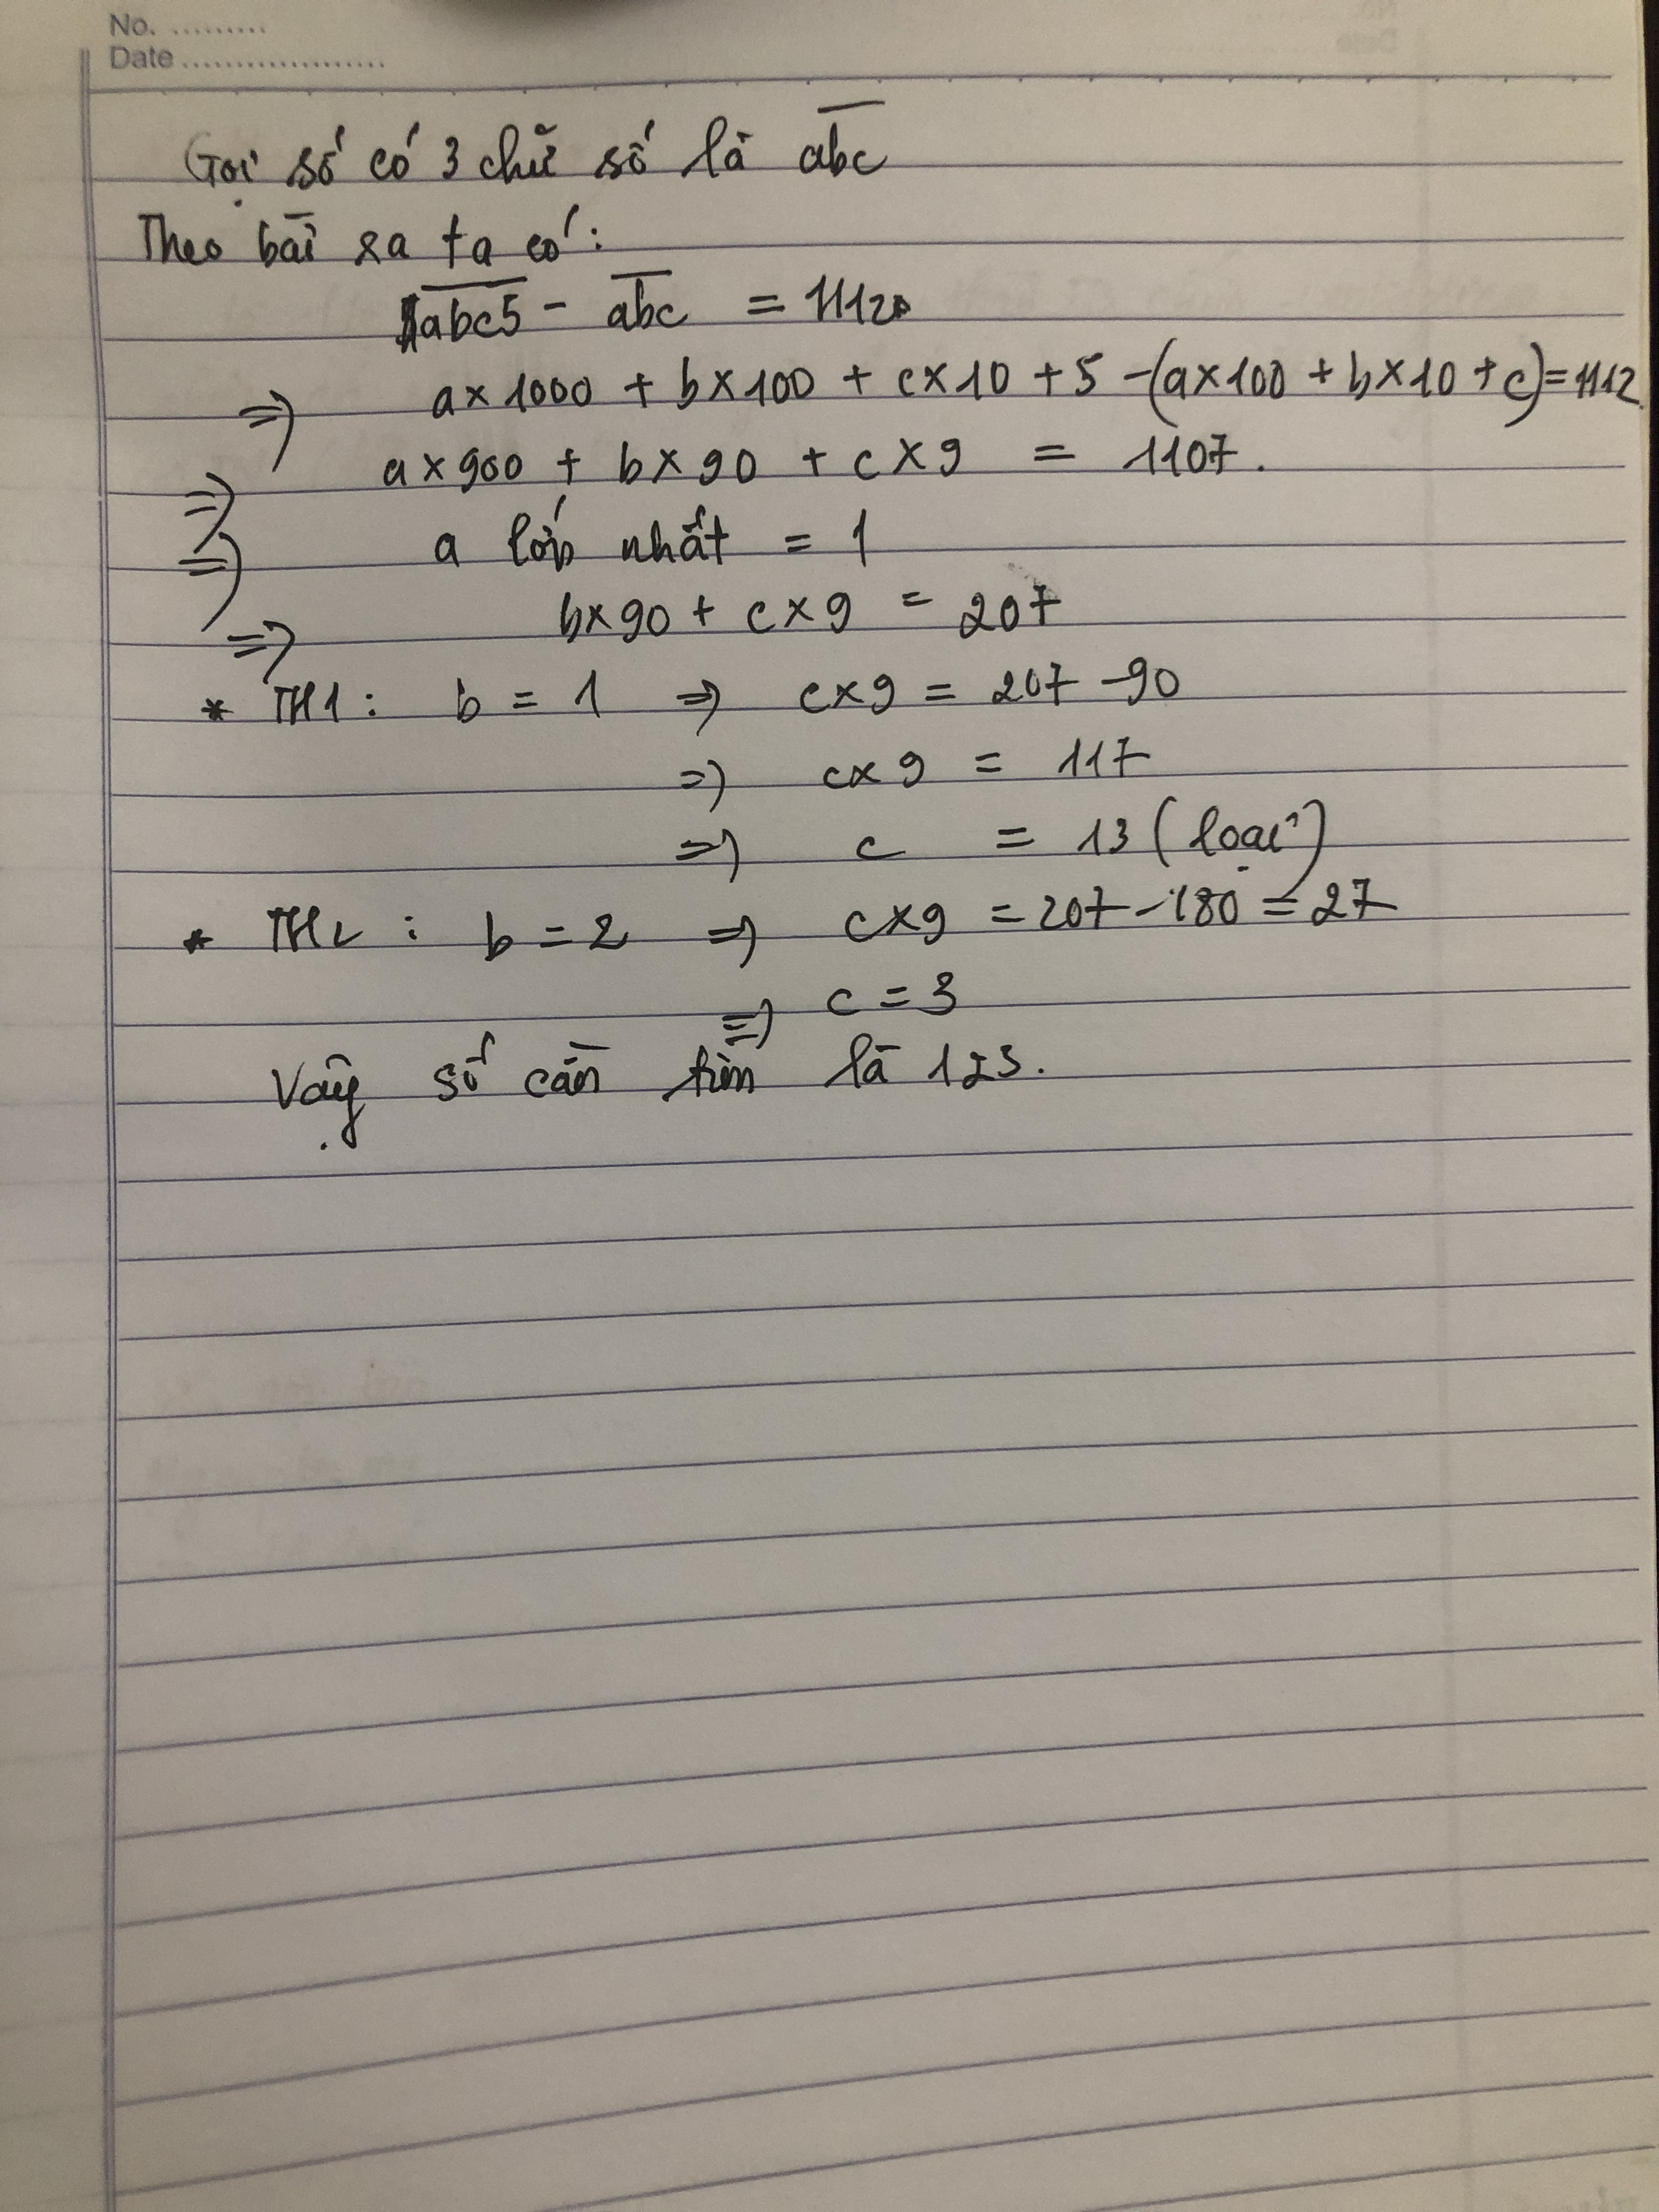 No. .........
Date ...................
Gọi số có 3 chữ số là abc
Theo bài ra ta có:
abc5 - abc = 1112
=> a x 1000 + b x 100 + c x 10 + 5 - (a x 100 + b x 10 + c) = 1112
=> a x 900 + b x 90 + c x 9 = 1107.
=> a lớn nhất = 1
=> b x 90 + c x 9 = 207
* TH1: b = 1 => c x 9 = 207 - 90
=> c x 9 = 117
=> c = 13 (loại)
* TH2: b = 2 => c x 9 = 207 - 180 = 27
=> c = 3
Vậy số cần tìm là 123.